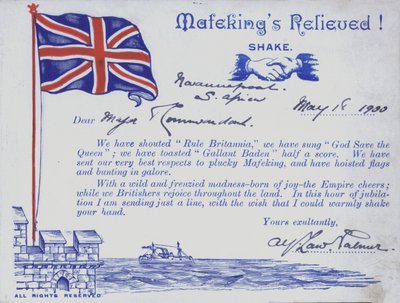 Mafeking's Relieved !
SHAKE.
S. Africa
May 18 1900
Dear Major
We have shouted "Rule Britannia," we have sung "God Save the
Queen"; we have toasted "Gallant Baden" half a score. We have
sent our very best respects to plucky Mafeking, and have hoisted flags
and bunting in galore.
With a wild and frenzied madness–born of joy–the Empire cheers;
while we Britishers rejoice throughout the land. In this hour of jubila-
tion I am sending just a line, with the wish that I could warmly shake
your hand.
Yours exultantly,
Palmer
ALL RIGHTS RESERVED